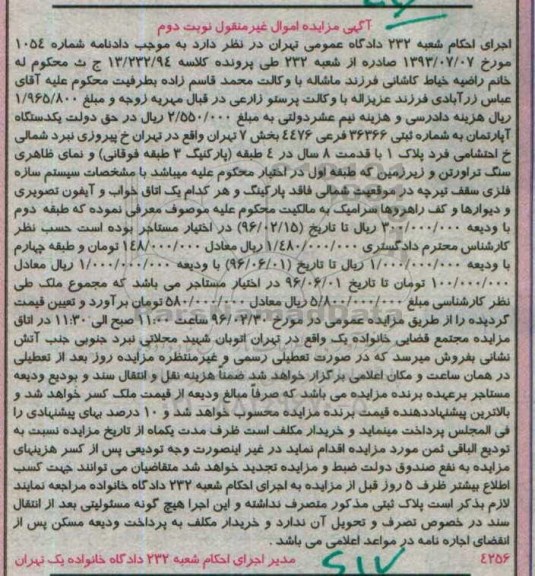 آگهی مزایده اموال غیرمنقول نوبت دوم
اجرای احکام شعبه ۲۳۲ دادگاه عمومی تهران در نظر دارد به موجب دادنامه شماره ۱۰۵٤
مورخ ۱۳۹۳/۰۷/۰۷ صادره از شعبه ۲۳۲ طی پرونده کلاسه ۱۳/۲۳۲/۹٤ ج ث محکوم له
خانم راضیه خیاط کاشانی فرزند ماشاله با وکالت محمد قاسم زاده بطرفیت محکوم علیه آقای
عباس زرآبادی فرزند عزیزاله با وکالت پرستو زارعی در قبال مهریه زوجه و مبلغ ۱/۹۶۵/۸۰۰
ریال هزینه دادرسی و هزینه نیم عشردولتی به مبلغ ۲/۵۵۰/۰۰۰ ریال در حق دولت یکدستگاه
آپارتمان به شماره ثبتی ۳۶۳۶۶ فرعی ٤٤۷۶ بخش ۷ تهران واقع در تهران خ پیروزی نبرد شمالی
خ احتشامی فرد پلاک ۱ با قدمت ۸ سال در ٤ طبقه (پارکینگ ۳ طبقه فوقانی) و نمای ظاهری
سنگ تراورتن و زیرزمین که طبقه اول در اختیار محکوم علیه میباشد با مشخصات سیستم سازه
فلزی سقف تیرچه در موقعیت شمالی فاقد پارکینگ و هر کدام یک اتاق خواب و آیفون تصویری
و دیوارها و کف راهروها سرامیک به مالکیت محکوم علیه موصوف معرفی نموده که طبقه دوم
با ودیعه ۳۰۰/۰۰۰/۰۰۰ ریال تا تاریخ (۹۶/۰۲/۱۵) در اختیار مستاجر بوده است حسب نظر
کارشناس محترم دادگستری ۱/٤۸۰/۰۰۰/۰۰۰ ریال معادل ۱٤۸/۰۰۰/۰۰۰ تومان و طبقه چهارم
با ودیعه ۱/۰۰۰/۰۰۰/۰۰۰ ریال تا تاریخ (۹۶/۰۶/۰۱) با ودیعه ۱/۰۰۰/۰۰۰/۰۰۰ ریال معادل
۱۰۰/۰۰۰/۰۰۰ تومان تا تاریخ ۹۶/۰۶/۰۱ در اختیار مستاجر می باشد که مجموع ملک طی
نظر کارشناسی مبلغ ۵/۸۰۰/۰۰۰/۰۰۰ ریال معادل ۵۸۰/۰۰۰/۰۰۰ تومان برآورد و تعیین قیمت
گردیده را از طریق مزایده عمومی در مورخ ۹۶/۰۲/۳۰ ساعت ۱۱:۰۰ صبح الی ۱۱:۳۰ در اتاق
مزایده مجتمع قضایی خانواده یک واقع در تهران اتوبان شهید محلاتی نبرد جنوبی جنب آتش
نشانی بفروش میرسد که در صورت تعطیلی رسمی و غیرمنتظره مزایده روز بعد از تعطیلی
در همان ساعت و مکان اعلامی برگزار خواهد شد ضمنا هزینه نقل و انتقال سند و بودیع ودیعه
مستاجر برعهده برنده مزایده می باشد که صرفاً مبالغ ودیعه از قیمت ملک کسر خواهد شد و
بالاترین پیشنهاددهنده قیمت برنده مزایده محسوب خواهد شد و ۱۰ درصد بهای پیشنهادی را
فی المجلس پرداخت مینماید و خریدار مکلف است ظرف مدت یکماه از تاریخ مزایده نسبت به
تودیع الباقی ثمن مورد مزایده اقدام نماید در غیر اینصورت وجه تودیعی پس از کسر هزینهای
مزایده به نفع صندوق دولت ضبط و مزایده تجدید خواهد شد متقاضیان می توانند جهت کسب
اطلاع بیشتر ظرف ۵ روز قبل از مزایده به اجرای احکام شعبه ۲۳۲ دادگاه خانواده مراجعه نمایند
لازم بذکر است پلاک ثبتی مذکور متصرف نداشته و این اجرا هیچ گونه مسئولیتی بعد از انتقال
سند در خصوص تصرف و تحویل آن ندارد و خریدار مکلف به پرداخت ودیعه مسکن پس از
انقضای اجاره نامه در مواعد اعلامی می باشد .
٤۲۵۶ مدیر اجرای احکام شعبه ۲۳۲ دادگاه خانواده یک تهران